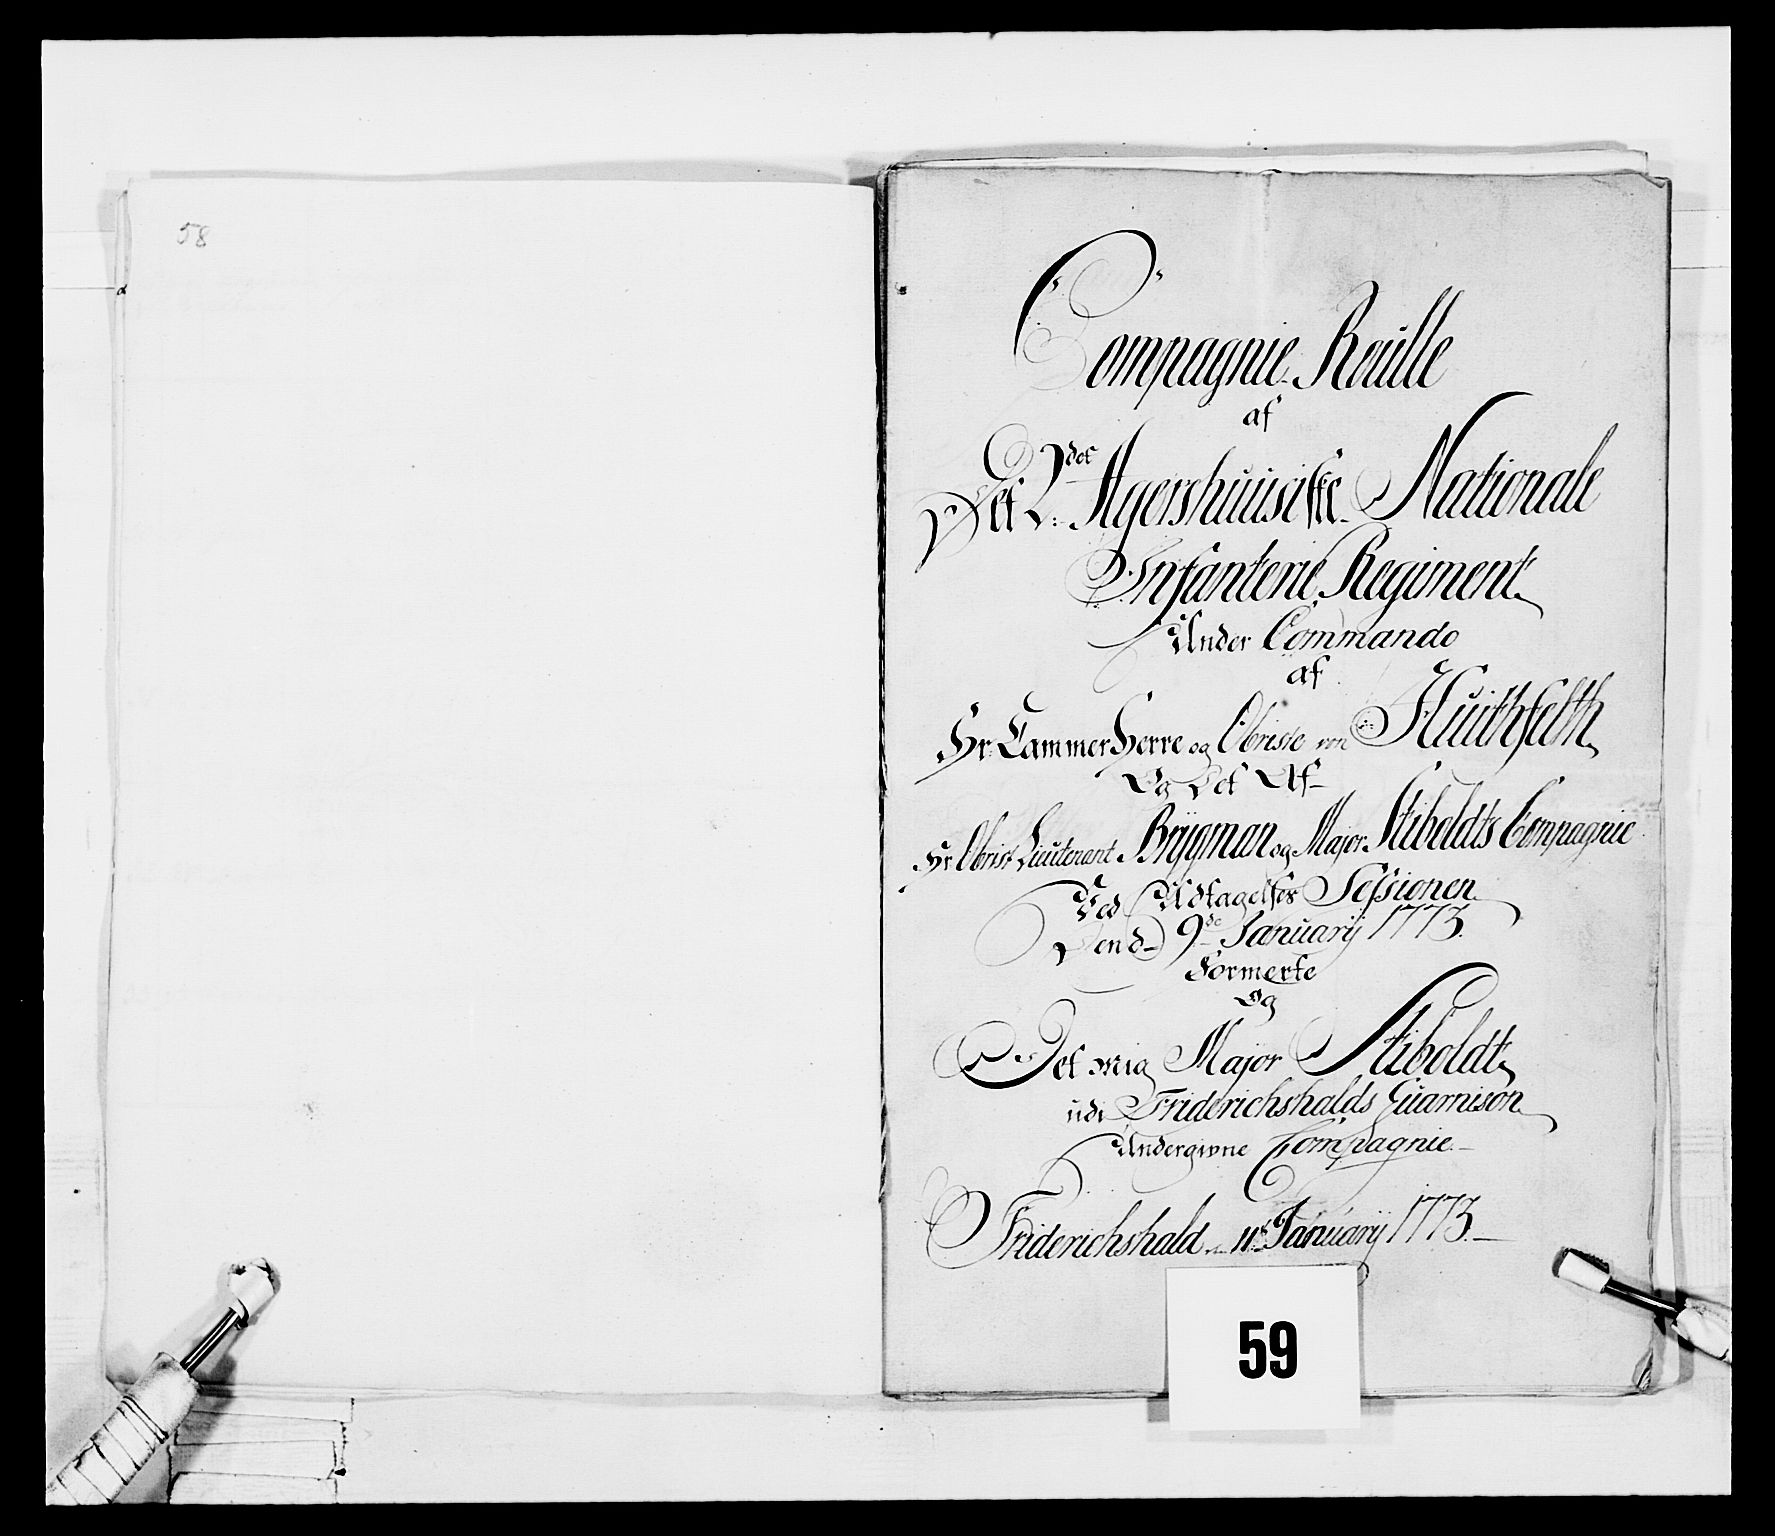 58
Compagnie Roulle
af
Det 2det Agershuusiske Nationale
Infanterie Regiment
Under Commando
af
Hr: CammerHerre og Obriste von Huithfelth
Og Det Af
Hr Obrist Lieutenant Brÿgman og Major Stiboldts Compagnie
Ved Udtagelses Sessionen
Dend 9de Januarÿ 1773.
Formerte
Og
Det mig Major Stiboldt
udi Friderichshalds Guarnison
Undergivne Compagnie
Friderichshald 11te Januarÿ 1773.
59